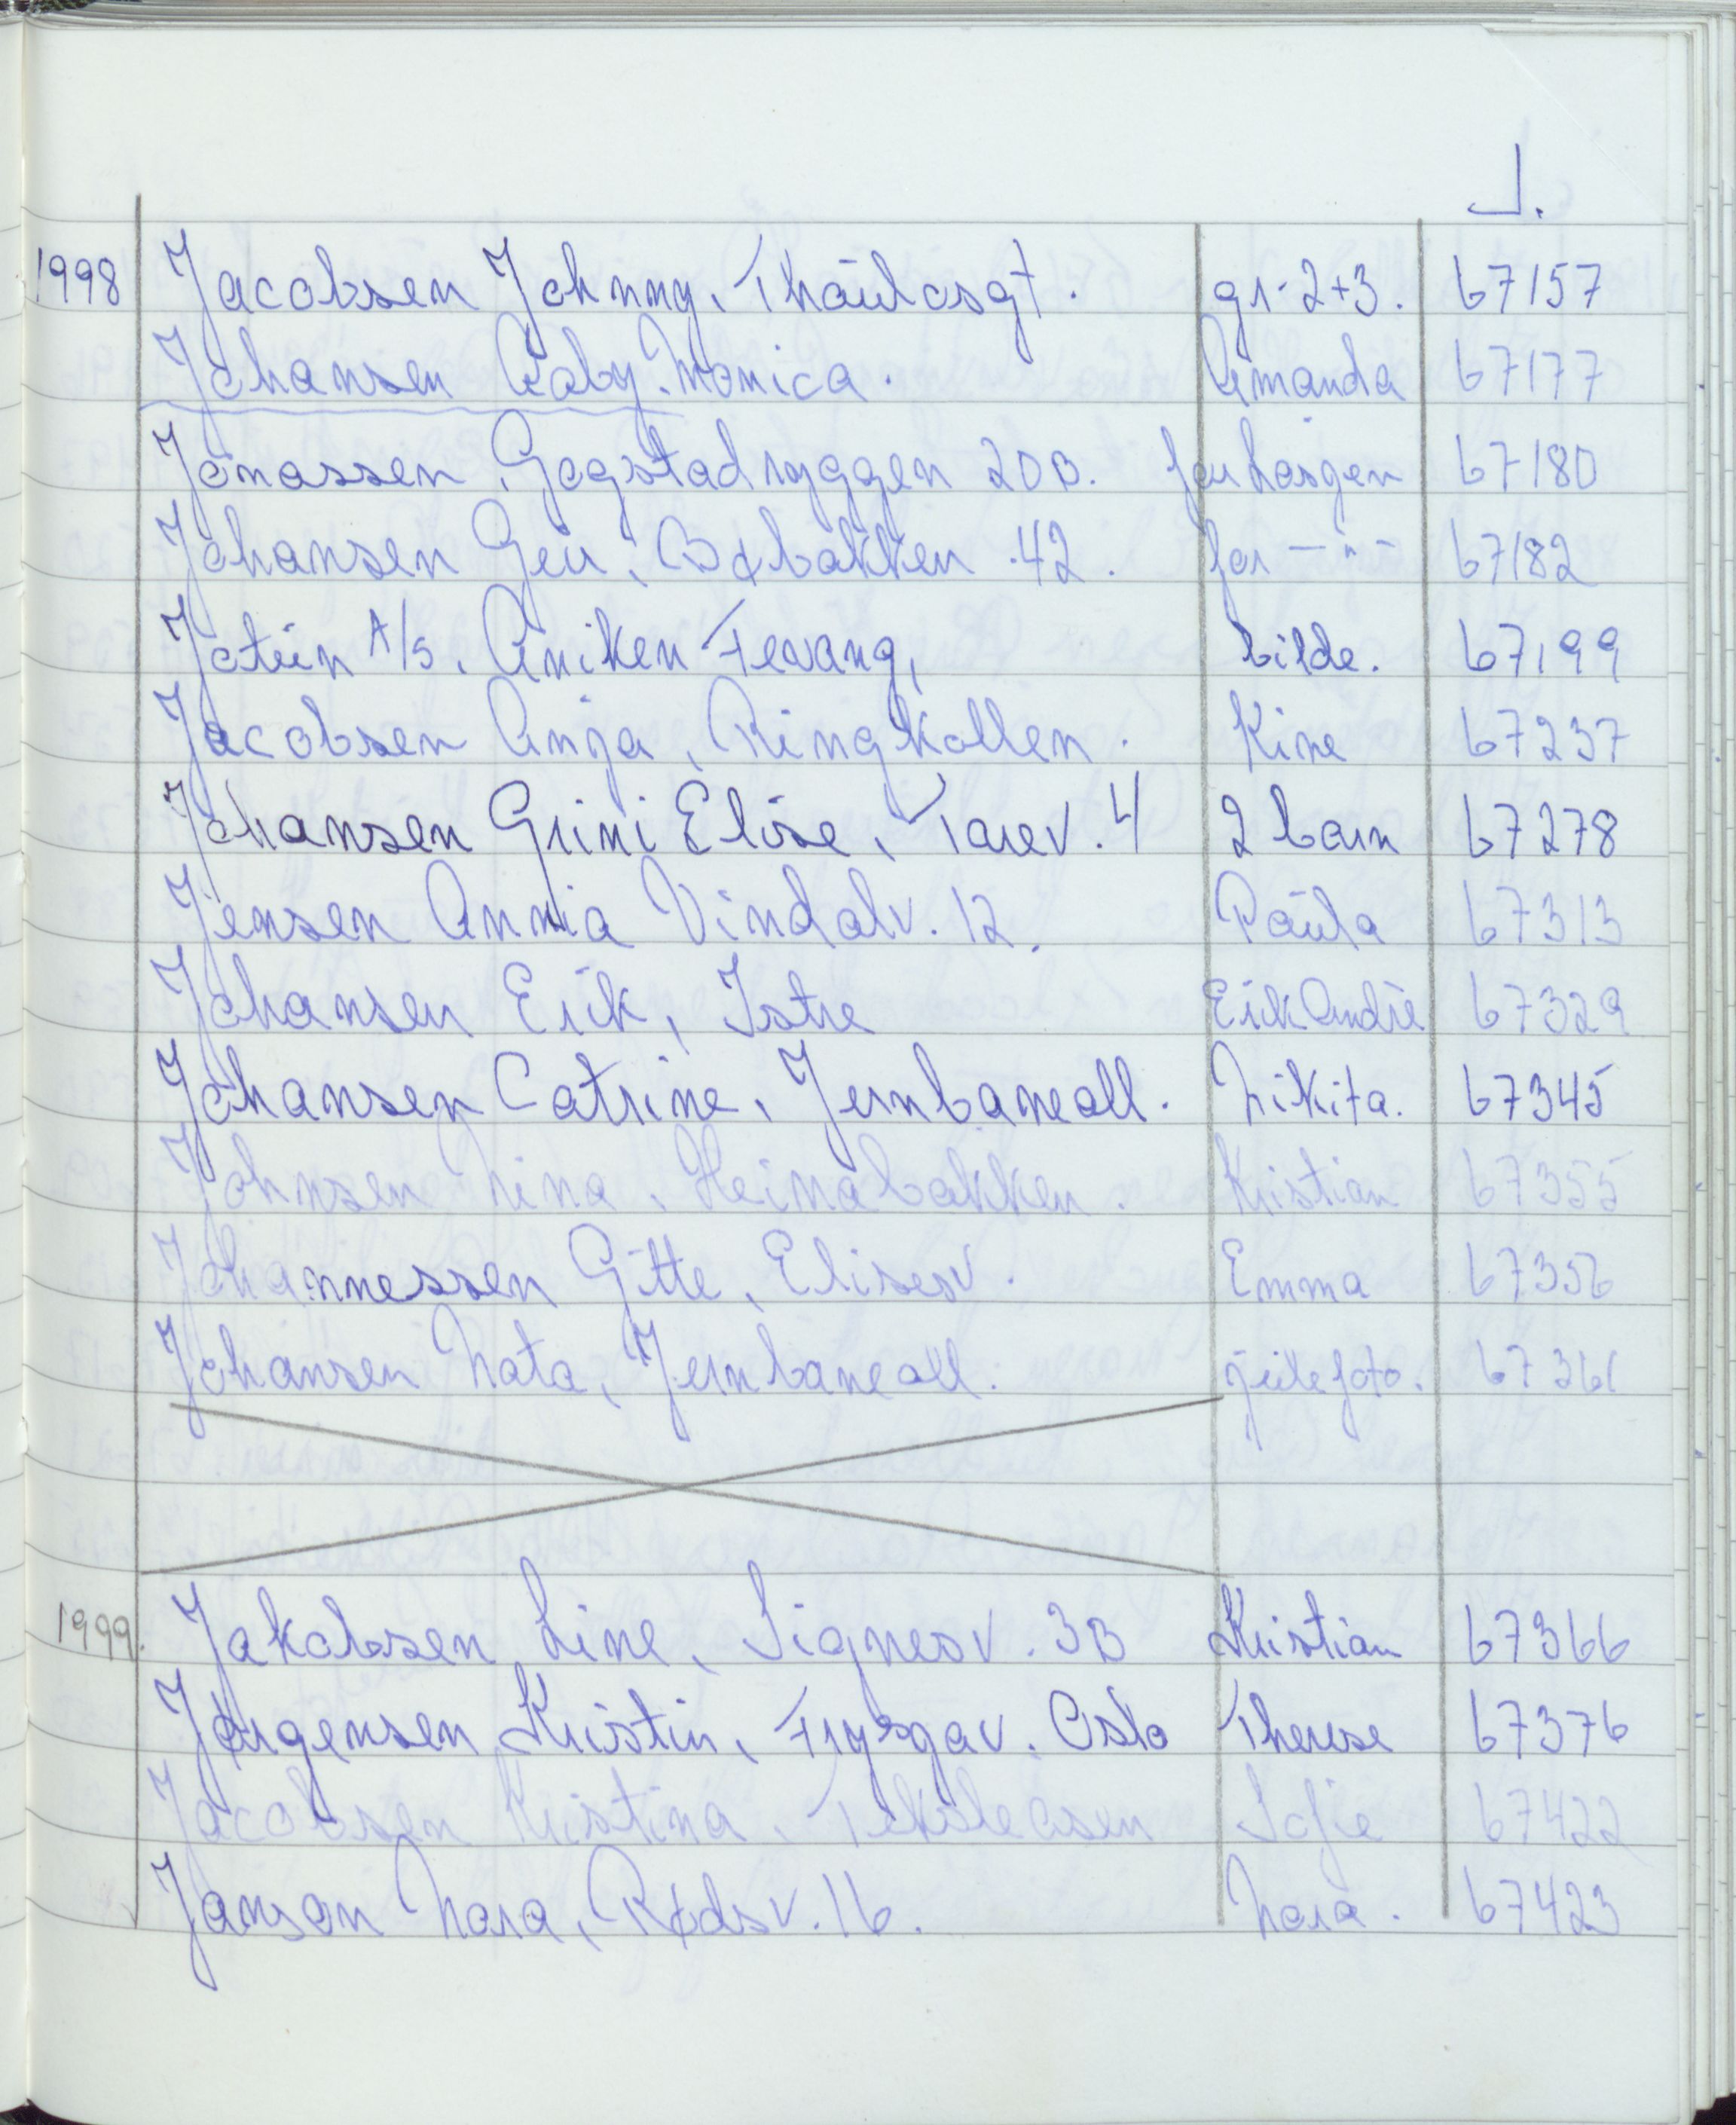 J.
1998 Jacobsen Johnny, Thaulosgt. gr. 2+3. 67157
Johansen Aaby. Monica. Amanda 67177
Jonassen, Gogstadryggen 20B. 67180
Johansen Geir, Bøbakken 42. for —"— 67182
Jotun A/S, Aniken Fevang, bilde. 67199
Jacobsen Anja, Ringkollen. Kine 67237
Johansen Grini Elise, Tarev. 4 2 barn 67278
Jensen Annia Vindalv. 12. Paula 67313
Johansen Erik, Istre Erik André 67329
Johansen Catrine, Jernbaneall. Nikita. 67345
Johnsen Nina, Heimabakken. Kristian 67355
Johannessen Gitte, Elisesv. Emma 67356
Johansen Nata, Jernbaneall. julefoto. 67361
1999. Jakobsen Line, Signesv. 3B Kristian 67366
Jørgensen Kristin, Oslo Therese 67376
Jacobsen Kristina, Sofie 67422
Janson Nora, Rødsv. 16. Nora. 67423